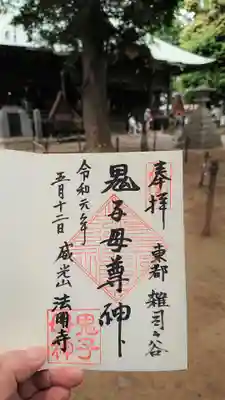 奉拝
東都 雜司ヶ谷
鬼子母尊神
令和元年
五月十二日 威光山 法明寺
鬼子
母神